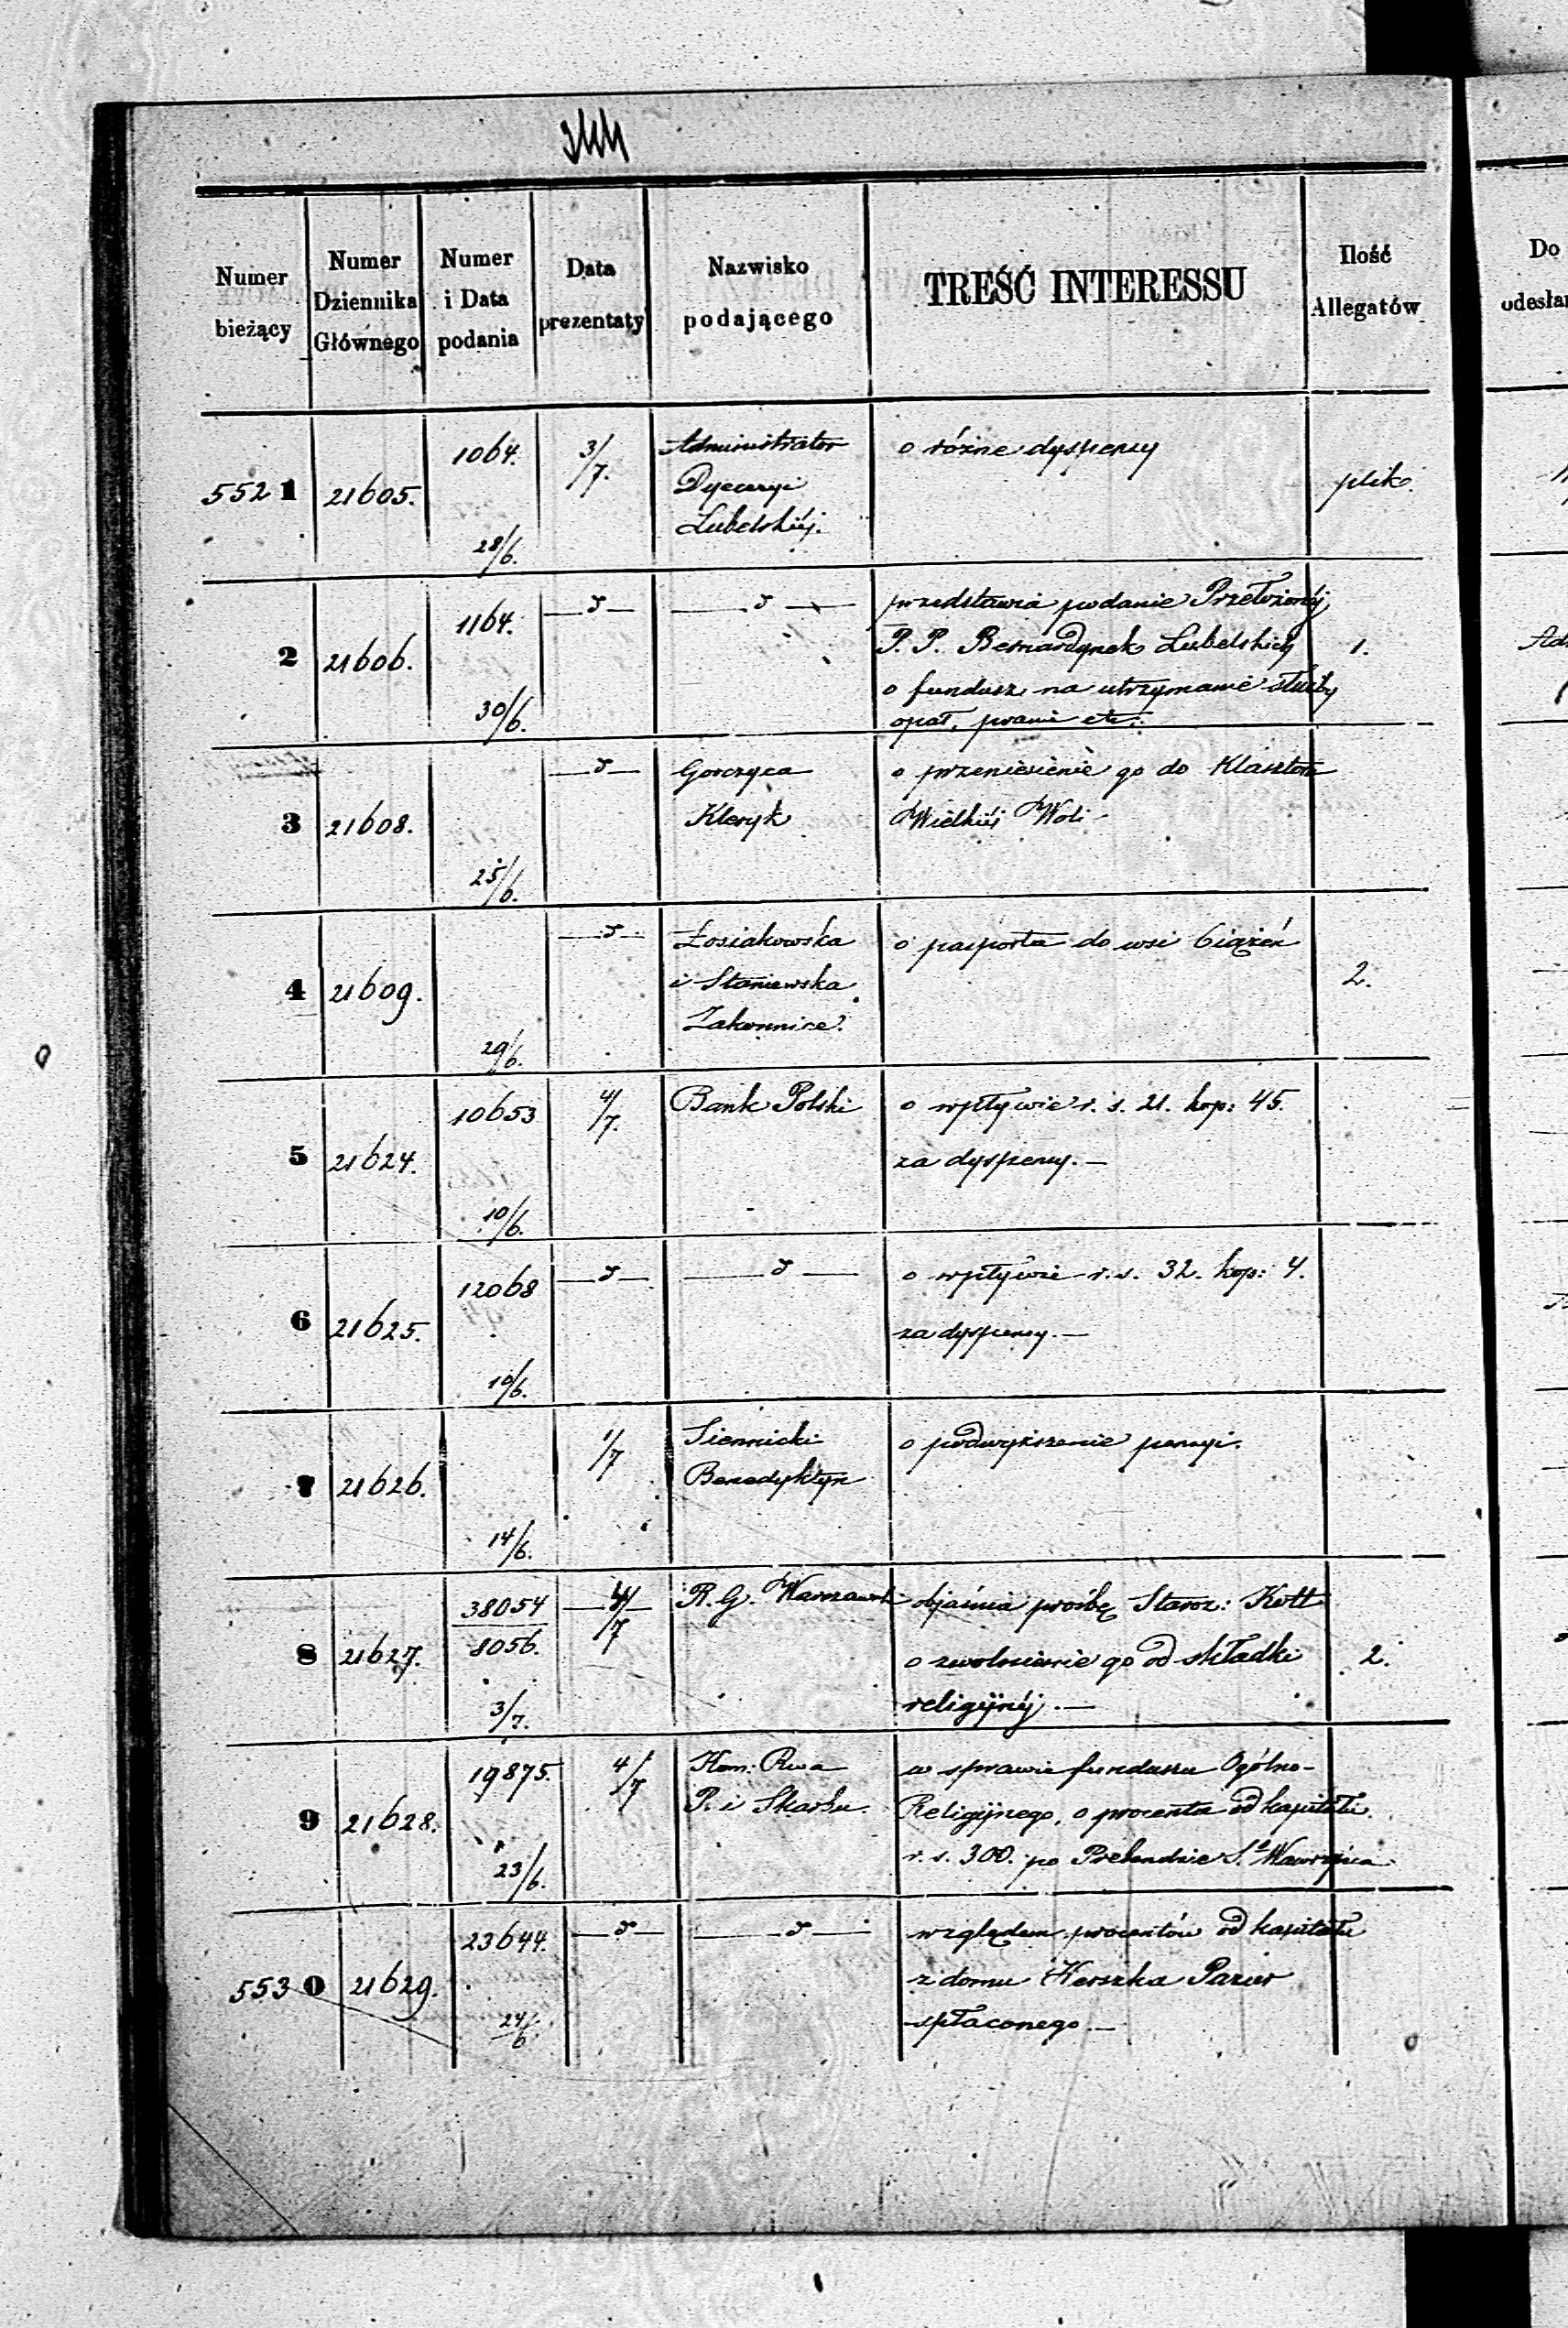 Numer bieżący | Numer Dziennika Głównego | Numer i Data podania | Data prezentaty | Nazwisko podającego | TREŚĆ INTERESSU | Ilość Allegatów | Do
5521 | 21605. | 1064. 28/6. | 3/7. | Administrator Dyecezyi Lubelskiéj. | o różne dyspensy | plik.
2 | 21606. | 1164. 30/6. | —d— | —d— | przedstawia podanie Przełożonéj
P. P. Bernardynek Lubelskich | 1.
o fundusz na utrzymanie służby
opał, pranie etc:
3 | 21608. | 25/6. | —d— | Gorczyca Kleryk | o przeniesienie go do Klasztoru
Wielkiéj Woli
4 | 21609. | 29/6. | —d— | Łosiakowska i Staniewska Zakonnice. | o pasporta do wsi Ciążeń | 2.
5 | 21624. | 10653 10/6. | 4/7. | Bank Polski | o wpływie r. s. 21. kop: 45.
za dyspensy. —
6 | 21625. | 12068 10/6. | —d— | —d— | o wpływie r. s. 32. kop: 4.
za dyspensy. —
7 | 21626. | 14/6. | 1/7 | Siennicki Benedyktyn | o podwyższenie pensyi.
8 | 21627. | 38054 8056. 3/7. | 4/7 | R. G. Warszawski | objaśnia prośbę Staroz: Kott
o zwolnienie go od składki | 2.
religijnéj. —
9 | 21628. | 19875. 23/6. | 4/7 | Kom: Rwa P. i Skarbu. | w sprawie funduszu Ogólno-
Religijnego, o procenta od kapitału
r. s. 300. po Prebendzie S. Wawrzyńca
5530 | 21629. | 23644. 24/6 | —d— | —d— | względem procentów od kapitału
z domu Herszka Pazier
spłaconego —